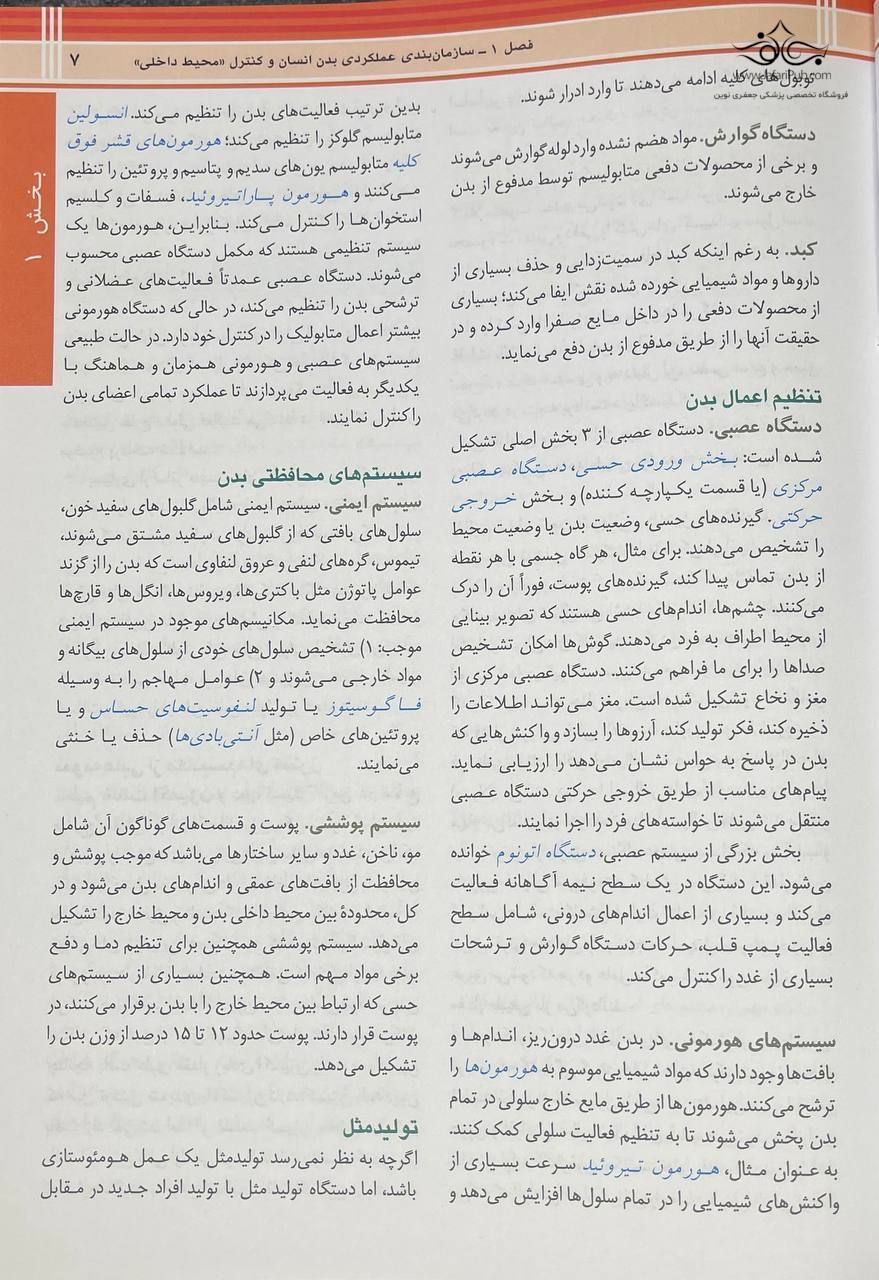 فصل ۱ ـ سازمان‌بندی عملکردی بدن انسان و کنترل «محیط داخلی»
۷
جعفری
www.JafariPub.com
فروشگاه تخصصی پزشکی جعفری نوین
بخش ۱
توبول‌های کلیه ادامه می‌دهند تا وارد ادرار شوند.
دستگاه گوارش. مواد هضم نشده وارد لوله گوارش می‌شوند
و برخی از محصولات دفعی متابولیسم توسط مدفوع از بدن
خارج می‌شوند.
کبد. به رغم اینکه کبد در سمیت‌زدایی و حذف بسیاری از
داروها و مواد شیمیایی خورده شده نقش ایفا می‌کند؛ بسیاری
از محصولات دفعی را در داخل مایع صفرا وارد کرده و در
حقیقت آنها را از طریق مدفوع از بدن دفع می‌نماید.
تنظیم اعمال بدن
دستگاه عصبی. دستگاه عصبی از ۳ بخش اصلی تشکیل
شده است: بخش ورودی حسی، دستگاه عصبی
مرکزی (یا قسمت یکپارچه کننده) و بخش خروجی
حرکتی. گیرنده‌های حسی، وضعیت بدن یا وضعیت محیط
را تشخیص می‌دهند. برای مثال، هر گاه جسمی با هر نقطه
از بدن تماس پیدا کند، گیرنده‌های پوست، فوراً آن را درک
می‌کنند. چشم‌ها، اندام‌های حسی هستند که تصویر بینایی
از محیط اطراف به فرد می‌دهند. گوش‌ها امکان تشخیص
صداها را برای ما فراهم می‌کنند. دستگاه عصبی مرکزی از
مغز و نخاع تشکیل شده است. مغز می‌تواند اطلاعات را
ذخیره کند، فکر تولید کند، آرزوها را بسازد و واکنش‌هایی که
بدن در پاسخ به حواس نشان می‌دهد را ارزیابی نماید.
پیام‌های مناسب از طریق خروجی حرکتی دستگاه عصبی
منتقل می‌شوند تا خواسته‌های فرد را اجرا نمایند.
بخش بزرگی از سیستم عصبی، دستگاه اتونوم خوانده
می‌شود. این دستگاه در یک سطح نیمه آگاهانه فعالیت
می‌کند و بسیاری از اعمال اندام‌های درونی، شامل سطح
فعالیت پمپ قلب، حرکات دستگاه گوارش و ترشحات
بسیاری از غدد را کنترل می‌کند.
سیستم‌های هورمونی. در بدن غدد درون‌ریز، اندام‌ها و
بافت‌ها وجود دارند که مواد شیمیایی موسوم به هورمون‌ها را
ترشح می‌کنند. هورمون‌ها از طریق مایع خارج سلولی در تمام
بدن پخش می‌شوند تا به تنظیم فعالیت سلولی کمک کنند.
به عنوان مثال، هورمون تیروئید سرعت بسیاری از
واکنش‌های شیمیایی را در تمام سلول‌ها افزایش می‌دهد و
بدین ترتیب فعالیت‌های بدن را تنظیم می‌کند. انسولین
متابولیسم گلوکز را تنظیم می‌کند؛ هورمون‌های قشر فوق
کلیه متابولیسم یون‌های سدیم و پتاسیم و پروتئین را تنظیم
می‌کنند و هورمون پاراتیروئید، فسفات و کلسیم
استخوان‌ها را کنترل می‌کند. بنابراین، هورمون‌ها یک
سیستم تنظیمی هستند که مکمل دستگاه عصبی محسوب
می‌شوند. دستگاه عصبی عمدتاً فعالیت‌های عضلانی و
ترشحی بدن را تنظیم می‌کند، در حالی که دستگاه هورمونی
بیشتر اعمال متابولیک را در کنترل خود دارد. در حالت طبیعی
سیستم‌های عصبی و هورمونی همزمان و هماهنگ با
یکدیگر به فعالیت می‌پردازند تا عملکرد تمامی اعضای بدن
را کنترل نمایند.
سیستم‌های محافظتی بدن
سیستم ایمنی. سیستم ایمنی شامل گلبول‌های سفید خون،
سلول‌های بافتی که از گلبول‌های سفید مشتق می‌شوند،
تیموس، گره‌های لنفی و عروق لنفاوی است که بدن را از گزند
عوامل پاتوژن مثل باکتری‌ها، ویروس‌ها، انگل‌ها و قارچ‌ها
محافظت می‌نماید. مکانیسم‌های موجود در سیستم ایمنی
موجب: ۱) تشخیص سلول‌های خودی از سلول‌های بیگانه و
مواد خارجی می‌شوند و ۲) عوامل مهاجم را به وسیله
فاگوسیتوز یا تولید لنفوسیت‌های حساس و یا
پروتئین‌های خاص (مثل آنتی‌بادی‌ها) حذف یا خنثی
می‌نمایند.
سیستم پوششی. پوست و قسمت‌های گوناگون آن شامل
مو، ناخن، غدد و سایر ساختارها می‌باشد که موجب پوشش و
محافظت از بافت‌های عمقی و اندام‌های بدن می‌شود و در
کل، محدودهٔ بین محیط داخلی بدن و محیط خارج را تشکیل
می‌دهد. سیستم پوششی همچنین برای تنظیم دما و دفع
برخی مواد مهم است. همچنین بسیاری از سیستم‌های
حسی که ارتباط بین محیط خارج را با بدن برقرار می‌کنند، در
پوست قرار دارند. پوست حدود ۱۲ تا ۱۵ درصد از وزن بدن را
تشکیل می‌دهد.
تولیدمثل
اگرچه به نظر نمی‌رسد تولیدمثل یک عمل هومئوستازی
باشد، اما دستگاه تولید مثل با تولید افراد جدید در مقابل